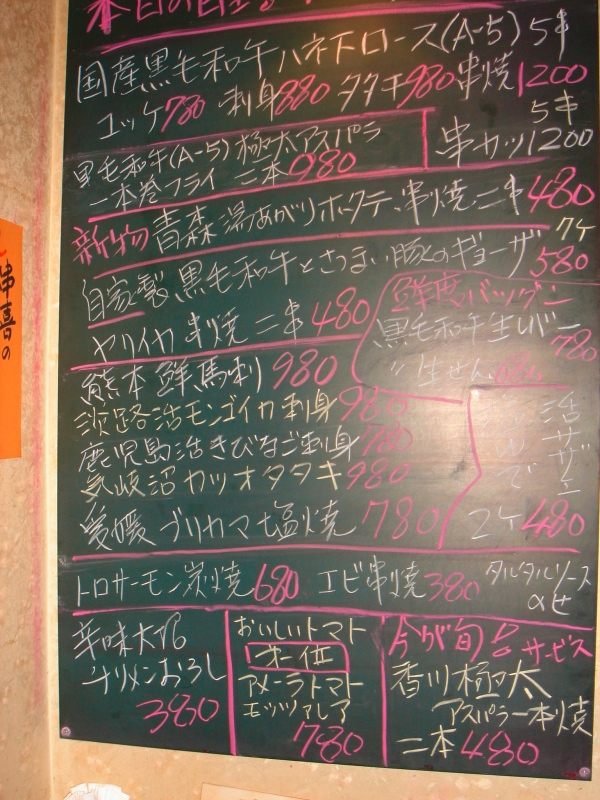 本日の
国産黒毛和牛ハネ下ロース(A-5) 5串
ユッケ780 刺身880 タタキ980 串焼1200
5串
串カツ1200
黒毛和牛(A-5)極太アスパラ
一本巻フライ 二本980
新物 青森湯あがりホタテ、串焼 二串480
自家製黒毛和牛とさつまい豚のギョーザ 7ケ580
ヤリイカ 串焼 二串480
鮮度バツグン
黒毛和牛生レバー
780
〃 生せん
熊本 鮮馬刺 980
淡路活モンゴイカ刺身 980
鹿児島活きびなご刺身 780
気岐沼カツオタタキ 980
愛媛 ブリカマ塩焼 780
活サザエ
2ケ480
トロサーモン炭焼680 エビ串焼380 タルタルソース
のせ
辛味大根
チリメンおろし
380
おいしいトマト
第一位
アメーラトマト
モッツァレア
780
今が旬 サービス
香川極太
アスパラ一本焼
二本480
串喜の